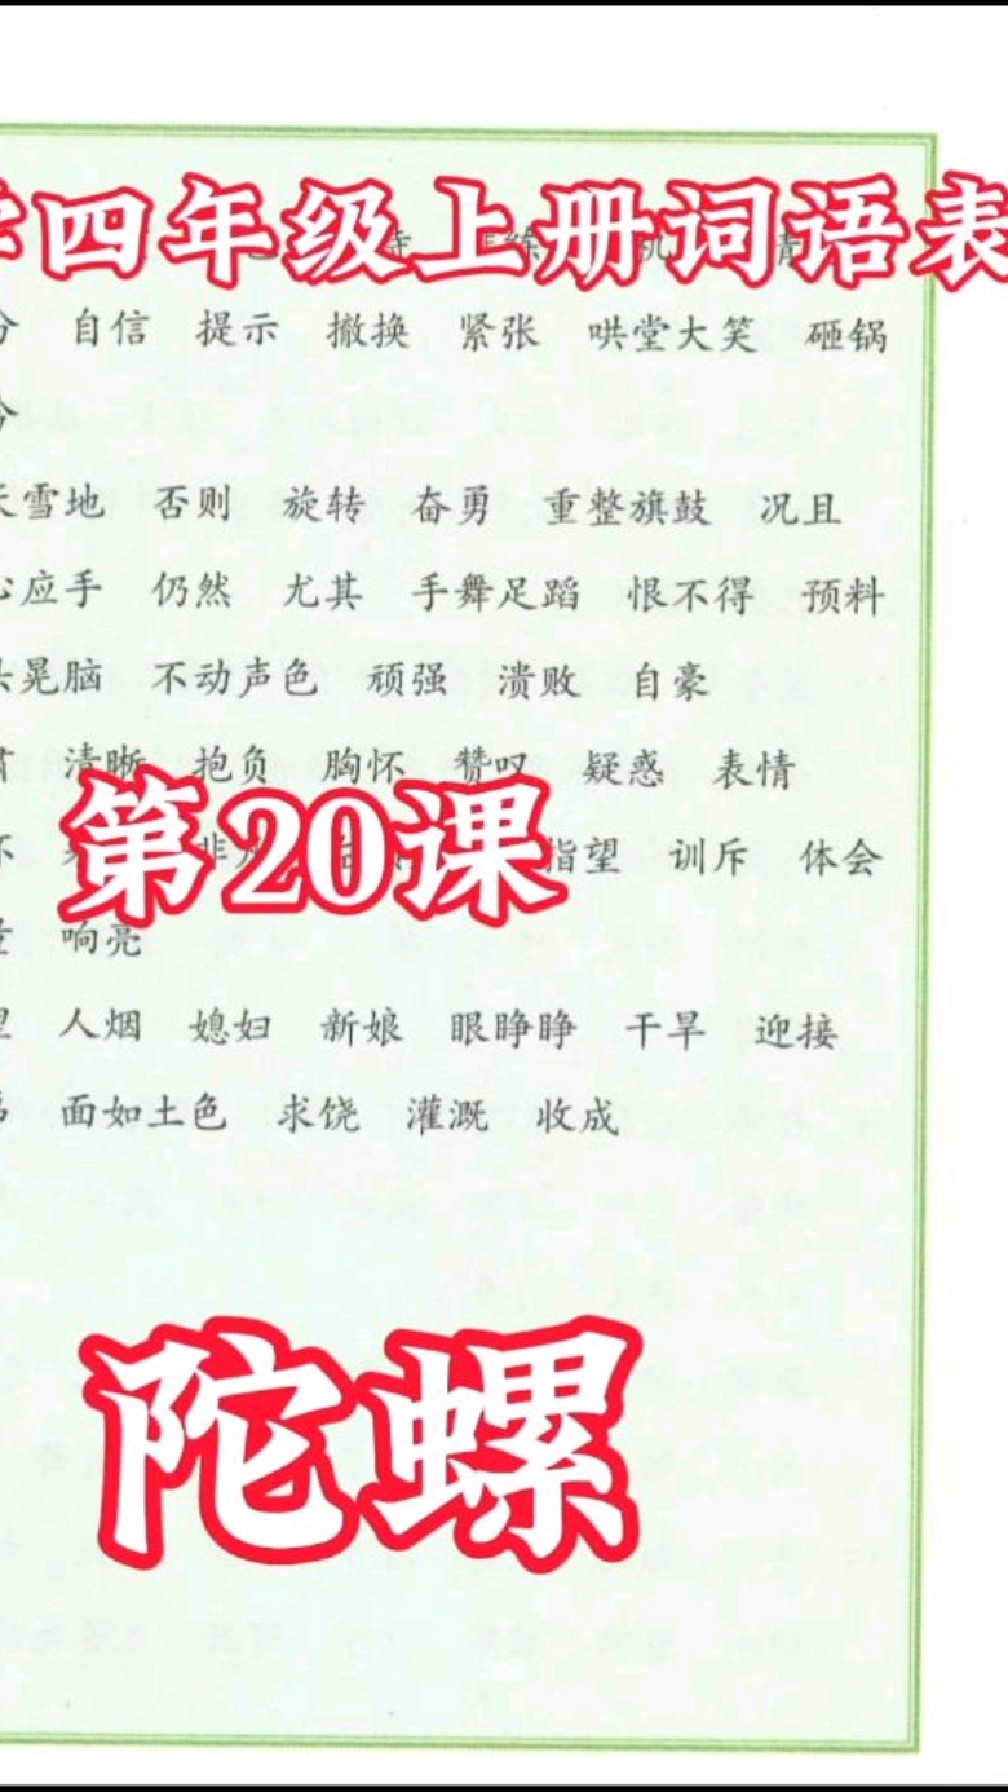 四年级上册词语表
自信 提示 撤换 紧张 哄堂大笑 砸锅
雪地 否则 旋转 奋勇 重整旗鼓 况且
应手 仍然 尤其 手舞足蹈 恨不得 预料
晃脑 不动声色 顽强 溃败 自豪
清晰 抱负 胸怀 赞叹 疑惑 表情
第20课
指望 训斥 体会
响亮
人烟 媳妇 新娘 眼睁睁 干旱 迎接
面如土色 求饶 灌溉 收成
陀螺